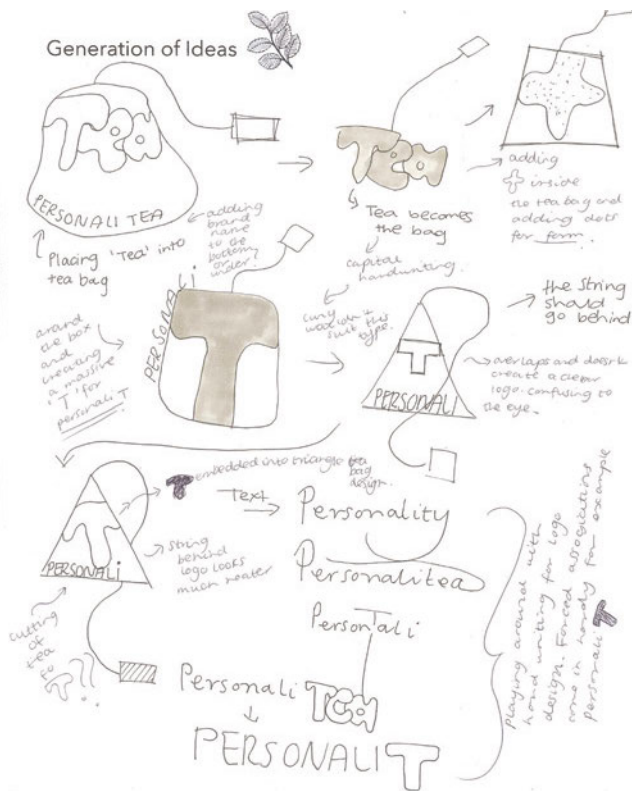 Generation of Ideas
Tea
PERSONALI TEA
Placing 'Tea' into
tea bag
adding
brand
name
to the
bottom
or
under.
Tea
Tea becomes
the bag
capital
handwriting.
curly
wouldn't
suit this
type.
adding
inside
the tea bag and
adding dots
for form.
around
the box
and
creating
a massive
'T' for
personali T
PERSONALI
T
T
PERSONALI
the string
should
go behind
overlaps and doesnt
create a clear
logo. confusing to
the eye.
T embedded into triangle tea
bag
design.
T
PERSONALI
String
behind
logo looks
much neater
cutting
of
tea
to
T??
Text
Personality
Personalitea
PersonTali
Personali Tea
PERSONALI T
Playing around with
hand writing for logo
design. Forced associations
come in handy for example
Personali T